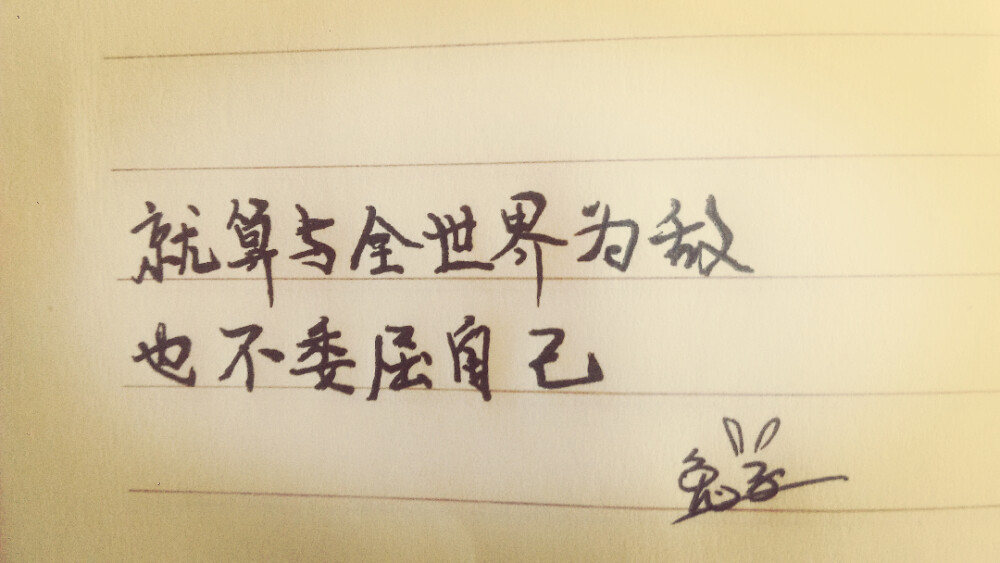 就算与全世界为敌
也不委屈自己
兔子